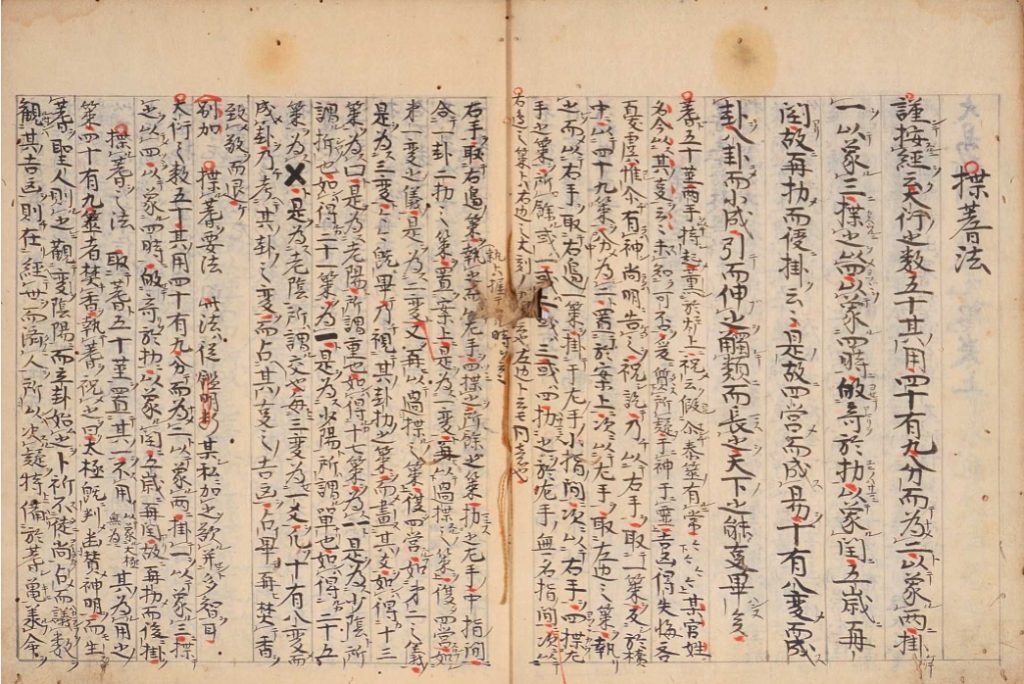 揲蓍法
謹按經云大衍之数五十其用四十有九分而為二以象兩掛
一以象三揲之以四以象四時皈竒於扐以象閏五歳再
閏故再扐而後掛云云是故四營而成易十有八変而成
卦八卦而小成引而伸之觸類而長之天下之能事畢矣
蓍五十茎兩手持起重於上祝云假令泰筮有常〻〻某官姓
名今以其事云云未知可不爰質所疑于神于霊吉凶得失悔吝
憂虞惟尓有神尚明告之祝訖乃以右手取一策反於櫝
中以四十九策分為二置於案上次以左手取左邊之策執
之而以右手取右邊一策掛于左手小指間次以右手四揲左
手之策所餘或一或二或三或四扐之於左手無名指間次以
右手取右邊策執之而左手四揲之所餘之策扐之左手中指間
合一卦二扐之策置案上是為一変再以過揲之策復四营如
才一変之儀是為二変又再以過揲之策復四营如才二之儀
是為三変〻〻既畢乃視其卦扐之策而畫其爻如得十三
策為口是為老陽所謂重也如得十七策為一一是為少陰所
謂拆也如得二十一策為一是為少陽所謂單也如得二十五
策為×是為老陰所謂交也毎三変為一爻凡十有八変而
成卦乃考其卦之変而占其事之吉凶占畢再焚香
致敬而退
別加 揲蓍要法 此法從鑑明 其私加之歟
大衍之数五十其用四十有九分而為二以象兩掛一以象三揲
之以四以象四時皈竒於扐以象閏五歳再閏故再扐而後掛
揲蓍之法 取蓍五十茎置其一不用 以象大極無為 其為用之
策四十有九筮者焚香執蓍祝之曰太極既判幽賛神明而生
蓍聖人則之觀変陰陽而立卦始也卜祈不徒尚占而議数
觀其吉凶則在経丗而済人所以决疑特備於蓍亀